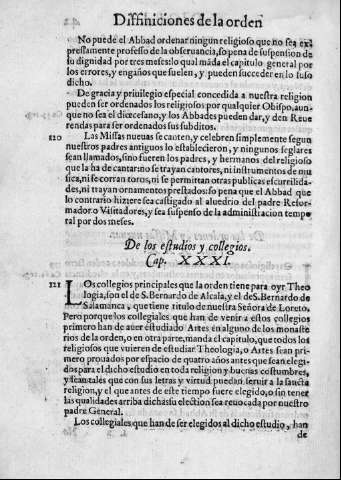 Diffiniciones de la orden
No puede el Abbad ordenar ningun religioso que no sea ex
pressamente professo de la obseruancia, so pena de suspension de
su dignidad por tres meses: lo qual māda el capitulo general por
los errores, y engaños que suelen, y pueden succeder en lo suso
dicho.
De gracia y priuilegio especial concedida a nuestra religion
pueden ser ordenados los religiosos por qualquier Obispo, aun-
que no sea el diœcesano, y los Abbades pueden dar, y den Reue
rendas para ser ordenados sus subditos.
120 Las Missas nueuas se canten, y celebren simplemente segun
nuestros padres antiguos lo establecieron, y ningunos seglares
sean llamados, sino fueren los padres, y hermanos del religioso
que la ha de cantar: no se trayan cantores, ni instrumentos de mu
sica, ni se corran toros, ni se permittan otras publicas escurrilida-
des, ni trayan ornamentos prestados: so pena que el Abbad que
lo contrario hiziere sea castigado al aluedrio del padre Refor-
mador o Visitadores, y sea suspenso de la administracion tempo
ral por dos meses.
De los estudios y collegios.
Cap. XXXI.
121 LOs collegios principales que la orden tiene para oyr Theo
logia, son el de S. Bernardo de Alcala, y el de S. Bernardo de
Salamanca, que tiene titulo de nuestra Señora de Loreto.
Pero porque los collegiales que han de venir a estos collegios
primero han de auer estudiado Artes en alguno de los monaste
rios de la orden, o en otra parte, manda el capitulo, que todos los
religiosos que vuieren de estudiar Theologia, o Artes sean pri-
mero prouados por espacio de quatro años antes que sean elegi-
dos para el dicho estudio en toda religion y buenas costumbres,
y sean tales que con sus letras y virtud puedan seruir a la sancta
religion, y el que antes de este tiempo fuere elegido, o sin tener
las qualidades arriba dichas su election sea reuocada por nuestro
padre General.
Los collegiales que han de ser elegidos al dicho estudio, han
de